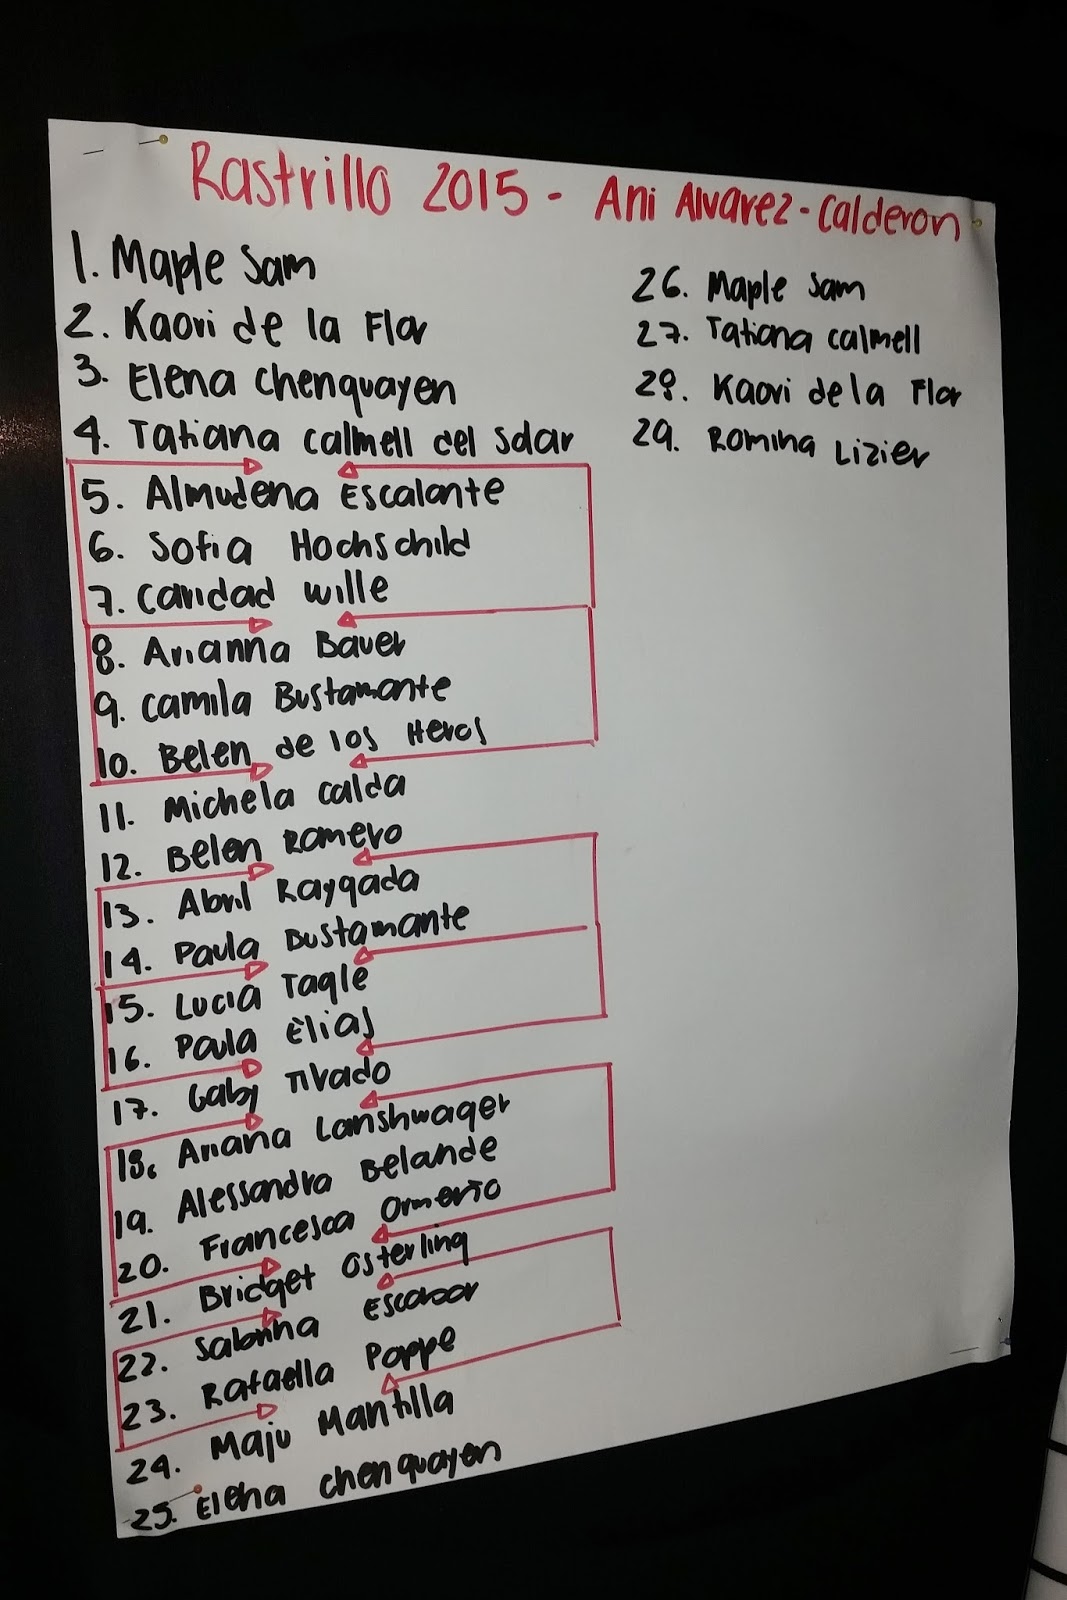 Rastrillo 2015 - Ani Alvarez-Calderon
1. Maple Sam
2. Kaori de la Flor
3. Elena Chenguayen
4. Tatiana Calmell del Solar
5. Almudena Escalante
6. Sofia Hochschild
7. Caridad Wille
8. Arianna Bauer
9. Camila Bustamante
10. Belen de los Heros
11. Michela Calda
12. Belen Romero
13. Abril Raygada
14. Paula Bustamante
15. Lucia Tagle
16. Paula Elias
17. Gaby Tirado
18. Ariana Lanshwager
19. Alessandra Belaunde
20. Francesca Ormeño
21. Bridget Osterling
22. Sabrina Escobar
23. Rafaella Poppe
24. Maju Mantilla
25. Elena Chenguayen
26. Maple Sam
27. Tatiana Calmell
28. Kaori de la Flor
29. Romina Lizier